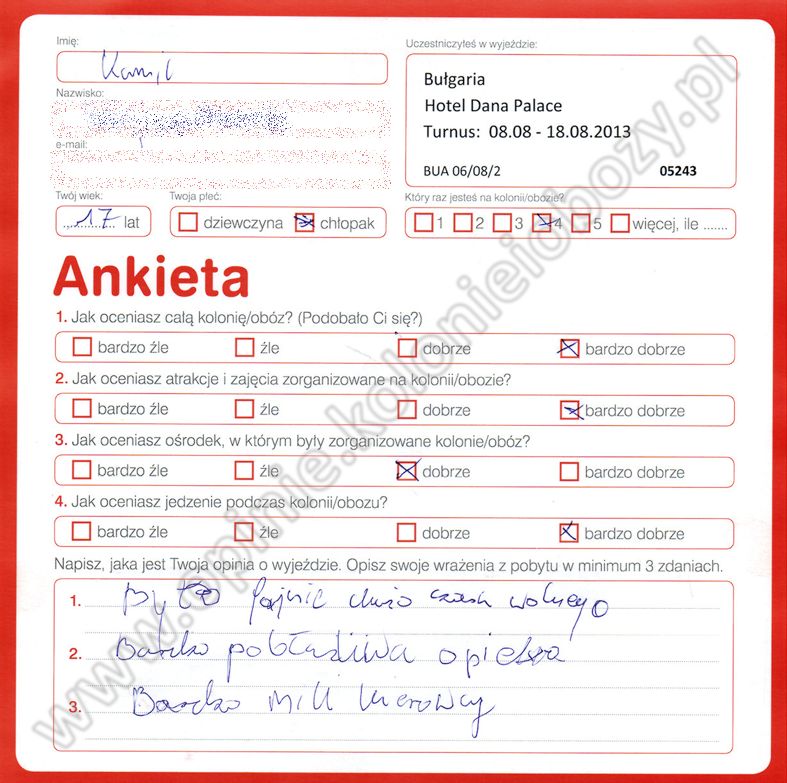 Imię:
Kamil
Nazwisko:
e-mail:
Twój wiek:
17 lat
Twoja płeć:
dziewczyna chłopak
Uczestniczyłeś w wyjeździe:
Bułgaria
Hotel Dana Palace
Turnus: 08.08 - 18.08.2013
BUA 06/08/2 05243
Który raz jesteś na kolonii/obozie?
1 2 3 4 5 więcej, ile .......
Ankieta
1. Jak oceniasz całą kolonię/obóz? (Podobało Ci się?)
bardzo źle źle dobrze bardzo dobrze
2. Jak oceniasz atrakcje i zajęcia zorganizowane na kolonii/obozie?
bardzo źle źle dobrze bardzo dobrze
3. Jak oceniasz ośrodek, w którym były zorganizowane kolonie/obóz?
bardzo źle źle dobrze bardzo dobrze
4. Jak oceniasz jedzenie podczas kolonii/obozu?
bardzo źle źle dobrze bardzo dobrze
Napisz, jaka jest Twoja opinia o wyjeździe. Opisz swoje wrażenia z pobytu w minimum 3 zdaniach.
1. Było fajnie dużo czasu wolnego
2. Bardzo pobłażliwa opieka
3. Bardzo mili kierowcy
www.opinie.kolonieiobozy.pl